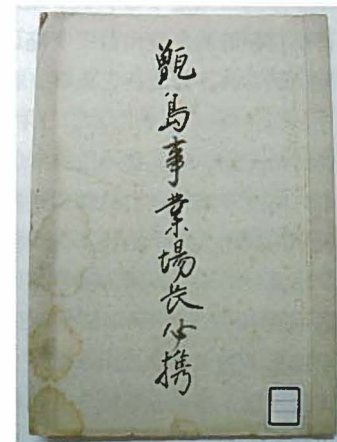 甑島事業場長必携